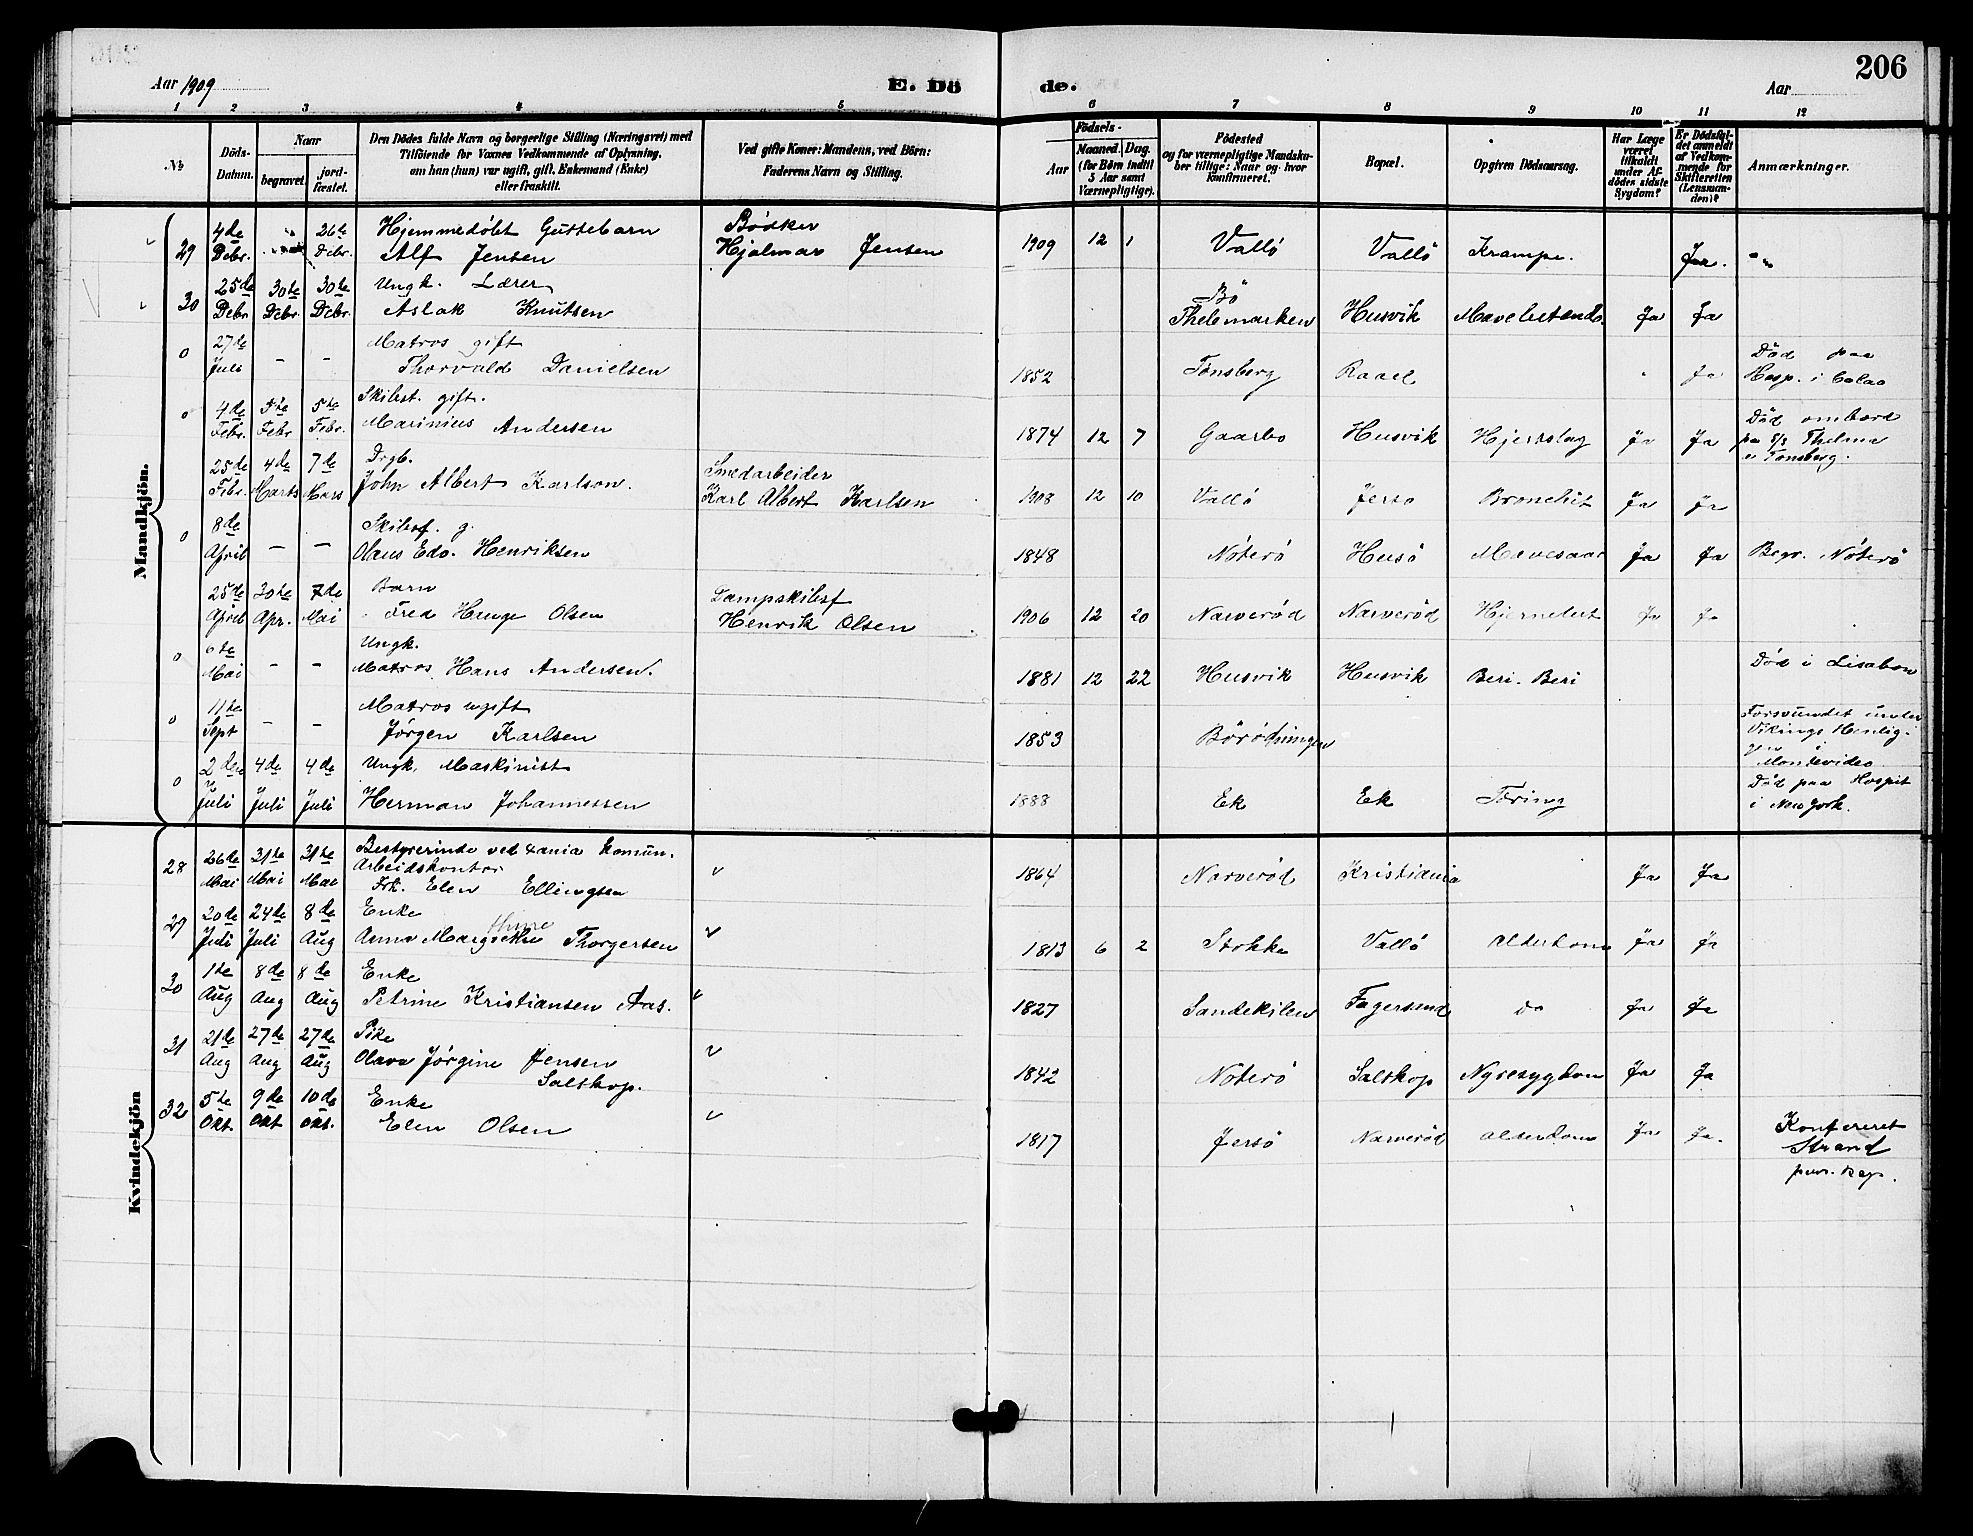 206
Aar 1909 E. Dö de. Aar
1 2 3 4 5 6 7 8 9 10 11 12
№
Döds-Datum.
Naar
begravet.
jord-fæstet.
Den Dödes fulde Navn og borgerlige Stilling (Næringsvei) med
Tilföiende for Voxnes Vedkommende af Oplysning,
om han (hun) var ugift, gift, Enkemand (Enke)
eller fraskilt.
Ved gifte Koner: Mandens, ved Börn:
Faderens Navn og Stilling.
Födsels-
Aar
Maaned. Dag.
(for Börn indtil
5 Aar samt
Værnepligtige).
Födested
og for værnepligtige Mandska-
ber tillige: Naar og hvor
konfirmeret.
Bopæl.
Opgiven Dödsaarsag.
Har Læge
været
tilkaldt
under Af-
dödes sidste
Sygdom?
Er Dödsfal-
det anmeldt
af Vedkom-
mende for
Skifteretten
(Lensman-
den)?
Anmærkninger.
Mandkjön.
29 4de Debr. " 26te Debr. Hjemmedøbt Guttebarn Bødker
Alf Jensen Hjalmar Jensen 1909 12 1 Vallø Vallø Krampe. Ja. " "
30 25de Debr. 30te Debr. 30te Debr. Ungk. Lærer
Aslak Knutsen Bö
Thelemarken Husvik Ja Ja
0 27de Juli – – Matros gift
Thorvald Danielsen 1852 Tønsberg Raael Ja Död paa
Hosp. i
0 4de Febr. 5te Febr 5te Febr. Skibst. gift.
Marinius Andersen 1874 12 7 Gaarbo Husvik Hjerteslag Ja Ja Död ombord
paa S/S Thelma
Tønsberg.
25de Febr. 4de Marts 7de Mars Drgb. Smedarbeider
John Albert Karlson. Karl Albert Karlsen 1908 12 10 Vallö Jersø Bronchit Ja Ja
0 8de April – – Skibsf. g.
Olaus Edv. Henriksen 1848 Nøterø Husø Mavesaar Ja Ja Begr. Nøterö
25de April 30te Apr. 7de Mai Barn Dampskibsf
Fred Hauge Olsen Henrik Olsen 1906 12 20 Narverød Narverød Hjernebet Ja Ja
0 6te Mai – – Ungk.
Matros Hans Andersen. 1881 12 22 Husvik Husvik Beri. Beri Død i Lisabon
0 11te Sept – – Matros ugift
Jørgen Karlsen 1853 Forsvundet under
Vikings Henlig-
gen i
Montevideo
0 2den Juli 4de Juli 4de Juli Ungk. Maskinist
Herman Johannessen 1888 Ek Ek Tæring Død paa Hospit
i New York.
Kvindekjön
28 26de Mai 31te Mai 31te Mai Bestyrerinde ved Xania Komun.
Arbeidskontor
Frk. Elen Ellingsen " 1864 Narverød Kristiania Ja Ja
29 20de Juli 24de Juli 8de Aug Enke
Anna Margrethe Thorgersen " 1813 6 2 Stokke Vallø Alderdom Ja Ja
30 1te Aug 8de Aug 8de Aug Enke
Petrine Kristiansen Aas. " 1827 Sandekilen Fagersand do Ja Ja
31 21de Aug 27de Aug 27de Aug Pike
Olava Jørgine Jensen
Saltkop. " 1842 Nøterø Saltkop Nyresygdom Ja Ja
32 5te Okt. 9de Okt 10de Okt. Enke
Elen Olsen " 1817 Jersø Narverød Alderdom Ja Ja. Konfereret
Strand